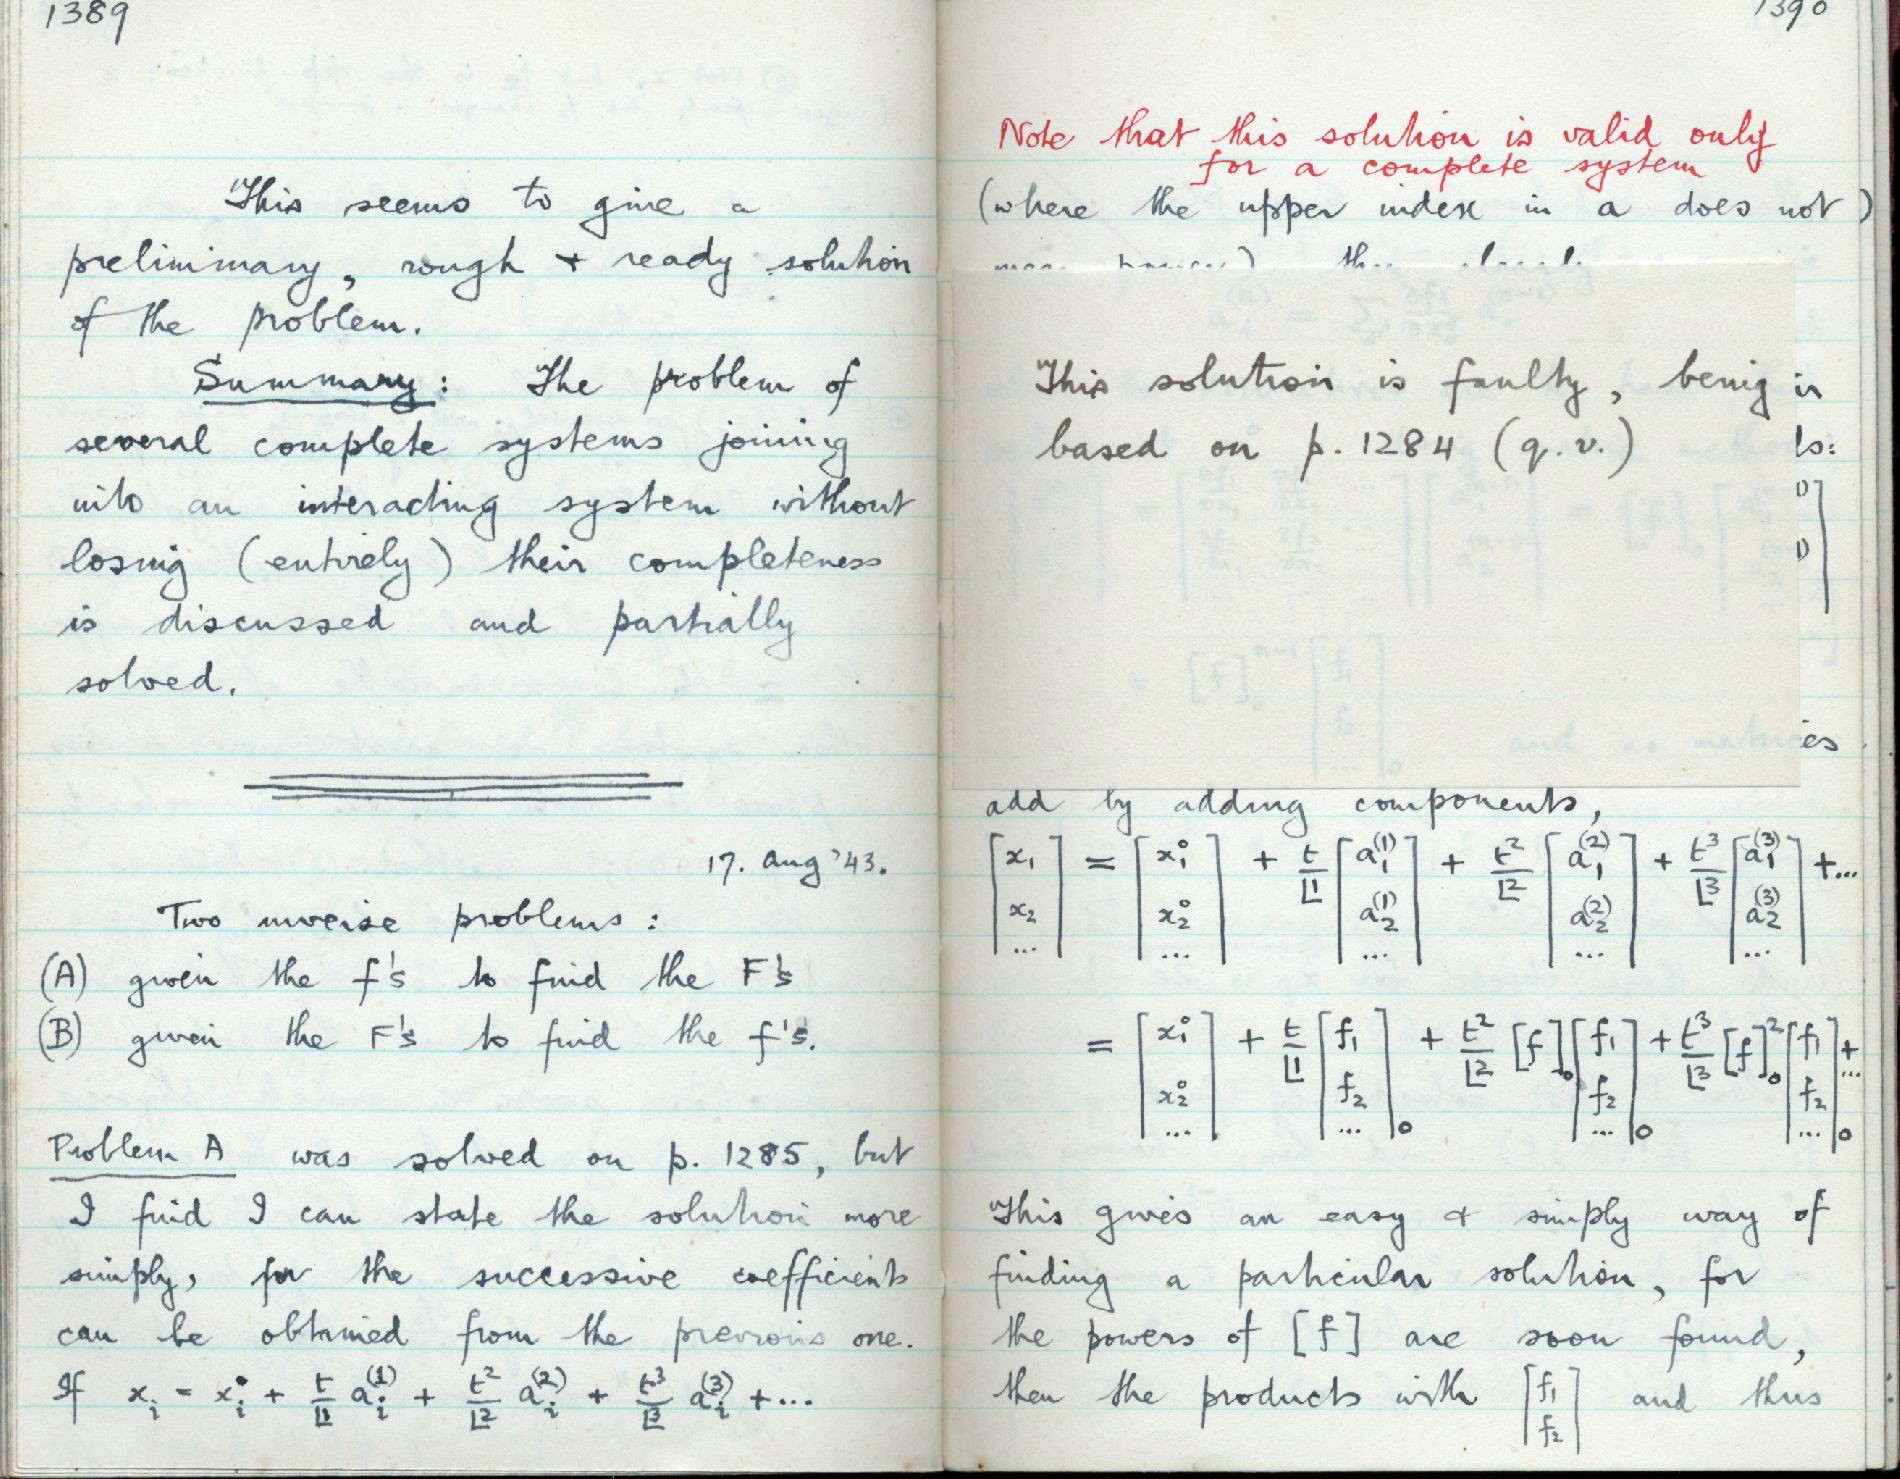 1389
This seems to give a
preliminary, rough + ready solution
of the problem.
Summary: The problem of
several complete systems joining
into an interacting system without
losing (entirely) their completeness
is discussed and partially
solved.
17. Aug '43.
Two inverse problems:
(A) given the f's to find the F's
(B) given the F's to find the f's.
Problem A was solved on p. 1285, but
I find I can state the solution more
simply, for the successive coefficients
can be obtained from the previous one.
If xᵢ = xᵢ° + t/⌊1 aᵢ⁽¹⁾ + t²/⌊2 aᵢ⁽²⁾ + t³/⌊3 aᵢ⁽³⁾ + ...
1390
Note that this solution is valid only
for a complete system
(where the upper index in a does not)
This solution is faulty, being
based on p. 1284 (q.v.)
es
add by adding components,
[x₁ x₂ ...] = [x₁° x₂° ...] + t/⌊1 [a₁⁽¹⁾ a₂⁽¹⁾ ...] + t²/⌊2 [a₁⁽²⁾ a₂⁽²⁾ ...] + t³/⌊3 [a₁⁽³⁾ a₂⁽³⁾ ...] + ...
= [x₁° x₂° ...] + t/⌊1 [f₁ f₂ ...]₀ + t²/⌊2 [f]₀ [f₁ f₂ ...]₀ + t³/⌊3 [f]₀² [f₁ f₂ ...]₀ + ...
This gives an easy & simply way of
finding a particular solution, for
the powers of [f] are soon found,
then the products with [f₁ f₂] and thus